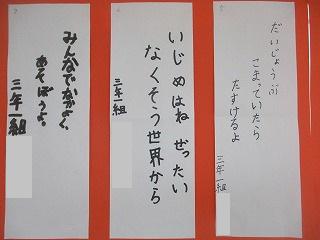 だいじょうぶ
こまっていたら
たすけるよ
三年一組
いじめはね ぜったい
なくそう世界から
三年一組
みんなでなかよく、
あそぼうよ。
三年一組